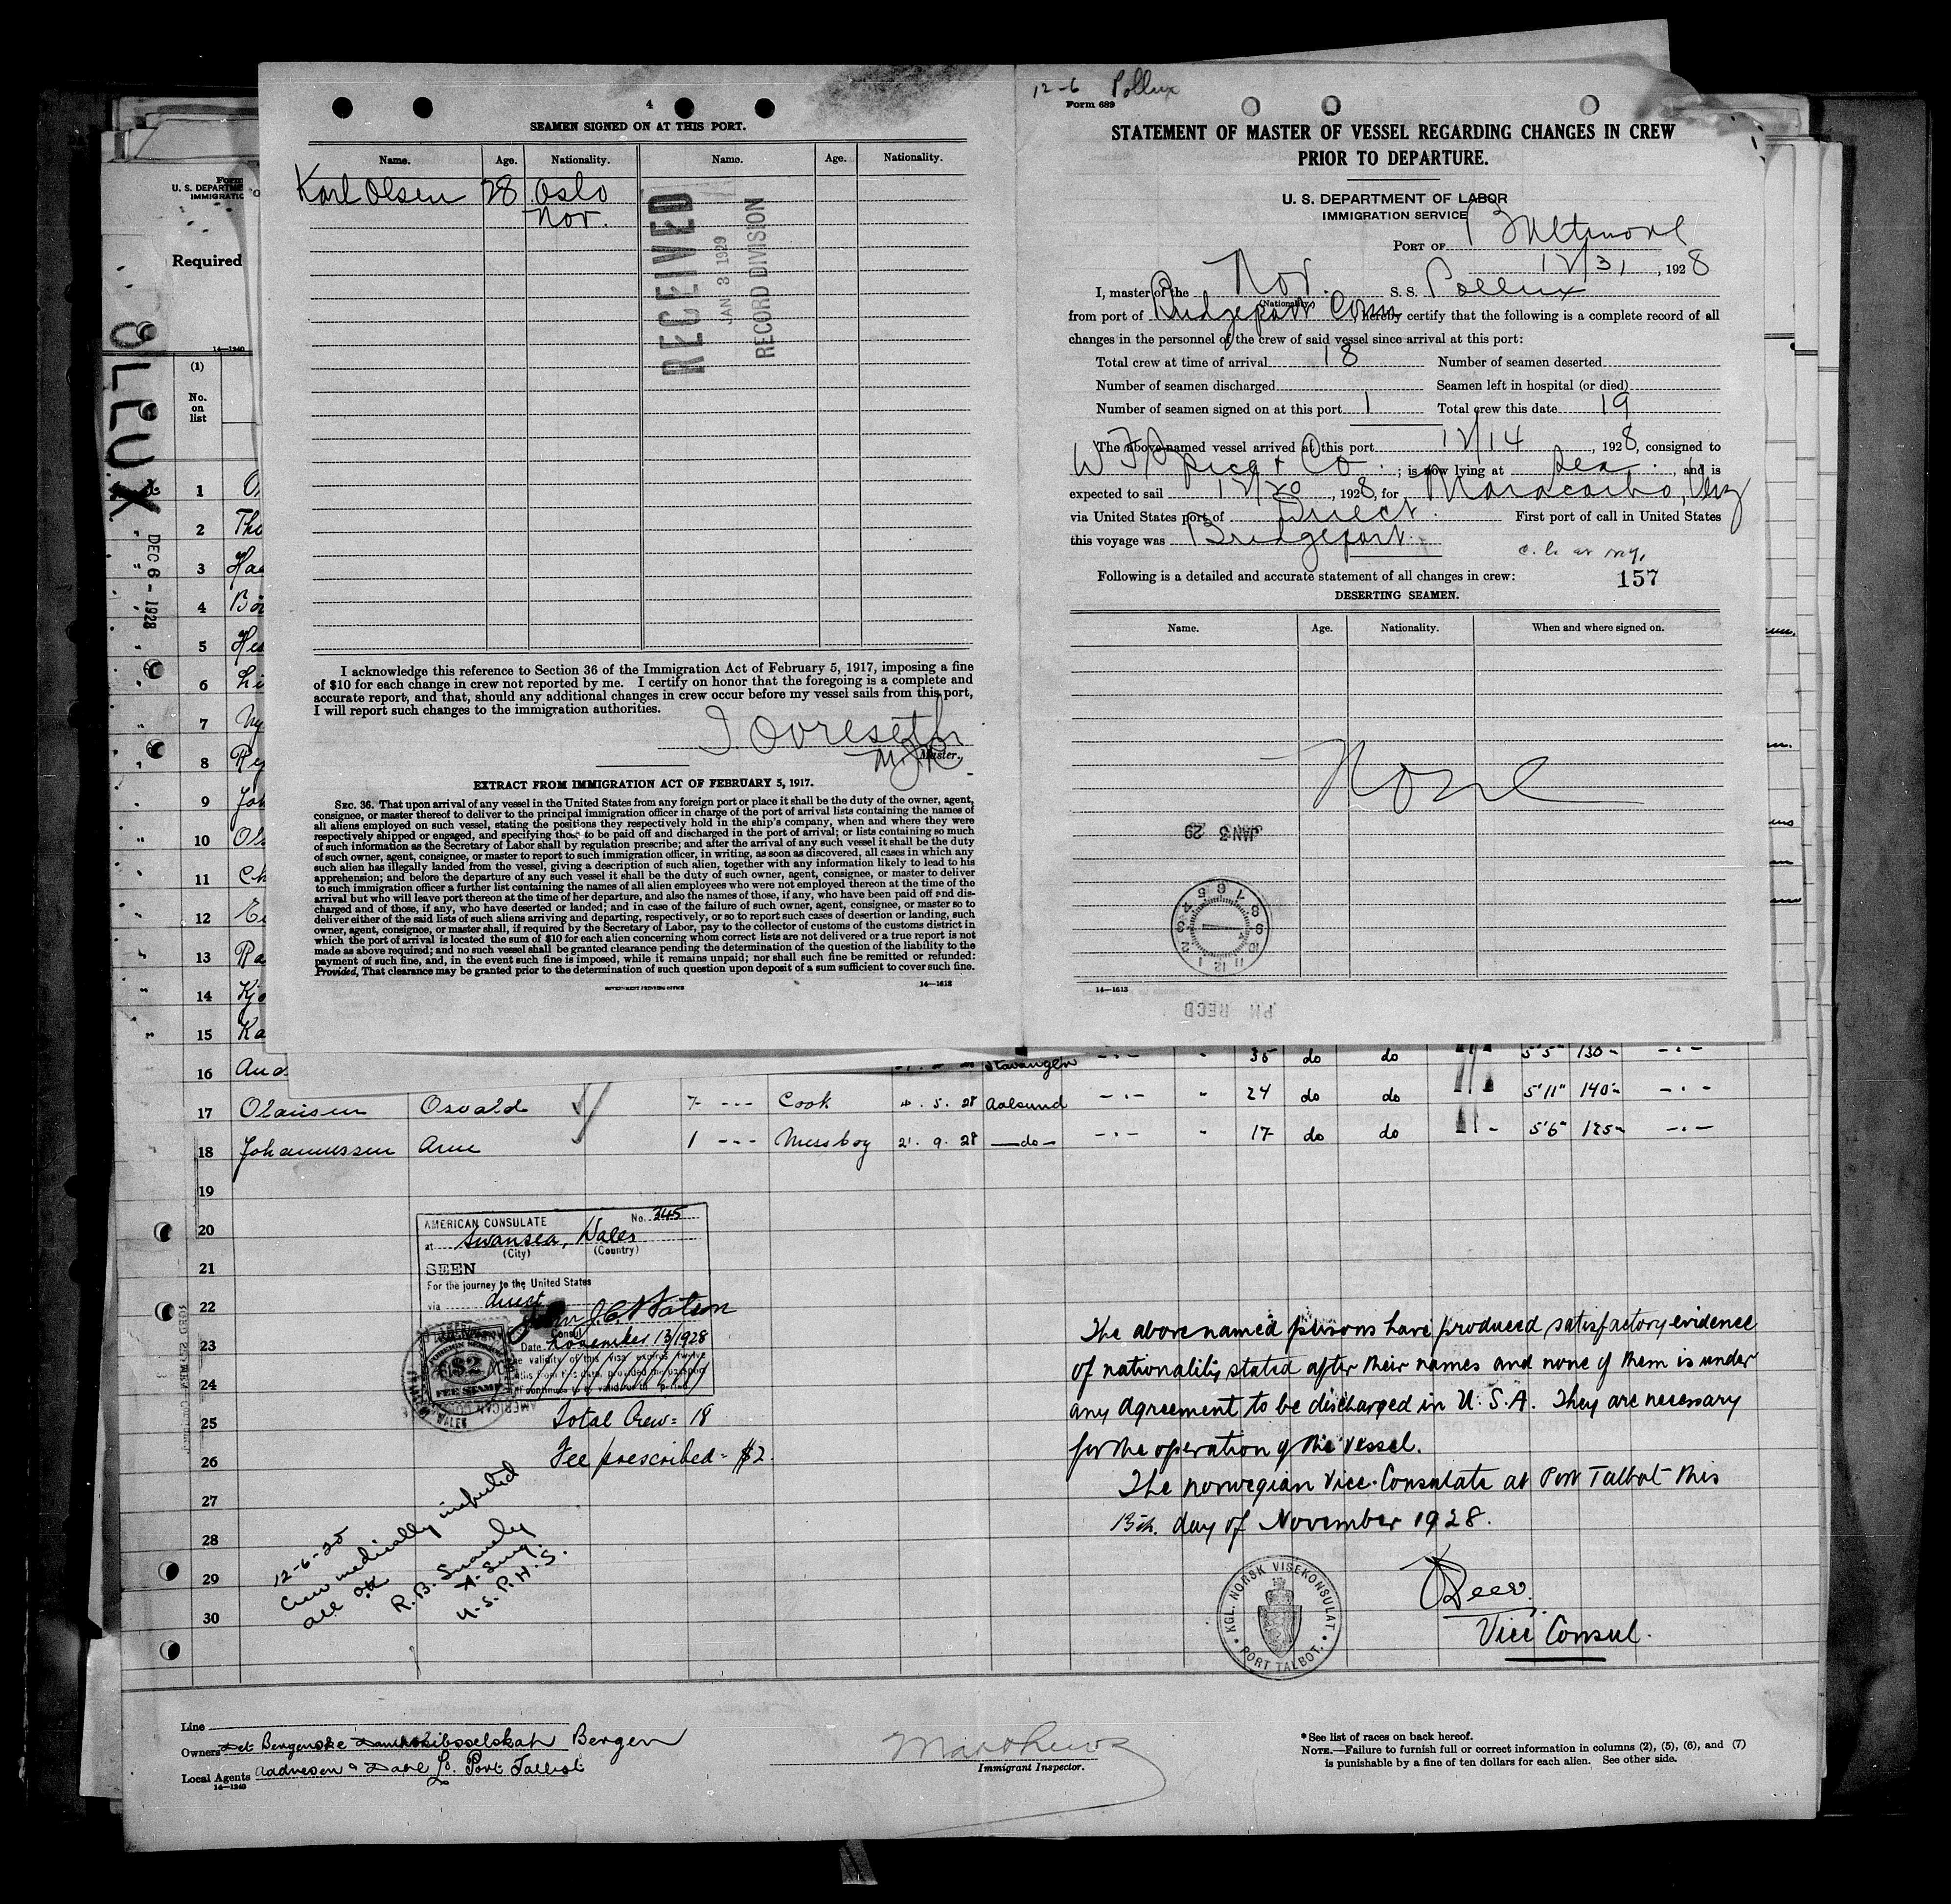 4
SEAMEN SIGNED ON AT THIS PORT.
Name. Age. Nationality. Name. Age. Nationality.
Karl Olsen 28 Oslo
Nor.
RECEIVED
JAN 3 1929
RECORD DIVISION
I acknowledge this reference to Section 36 of the Immigration Act of February 5, 1917, imposing a fine
of $10 for each change in crew not reported by me. I certify on honor that the foregoing is a complete and
accurate report, and that, should any additional changes in crew occur before my vessel sails from this port,
I will report such changes to the immigration authorities.
Master.
EXTRACT FROM IMMIGRATION ACT OF FEBRUARY 5, 1917.
SEC. 36. That upon arrival of any vessel in the United States from any foreign port or place it shall be the duty of the owner, agent,
consignee, or master thereof to deliver to the principal immigration officer in charge of the port of arrival lists containing the names of
all aliens employed on such vessel, stating the positions they respectively hold in the ship's company, when and where they were
respectively shipped or engaged, and specifying those to be paid off and discharged in the port of arrival; or lists containing so much
of such information as the Secretary of Labor shall by regulation prescribe; and after the arrival of any such vessel it shall be the duty
of such owner, agent, consignee, or master to report to such immigration officer, in writing, as soon as discovered, all cases in which any
such alien has illegally landed from the vessel, giving a description of such alien, together with any information likely to lead to his
apprehension; and before the departure of any such vessel it shall be the duty of such owner, agent, consignee, or master to deliver
to such immigration officer a further list containing the names of all alien employees who were not employed thereon at the time of the
arrival but who will leave port thereon at the time of her departure, and also the names of those, if any, who have been paid off and dis-
charged and of those, if any, who have deserted or landed; and in case of the failure of such owner, agent, consignee, or master so to
deliver either of the said lists of such aliens arriving and departing, respectively, or so to report such cases of desertion or landing, such
owner, agent, consignee, or master shall, if required by the Secretary of Labor, pay to the collector of customs of the customs district in
which the port of arrival is located the sum of $10 for each alien concerning whom correct lists are not delivered or a true report is not
made as above required; and no such vessel shall be granted clearance pending the determination of the question of the liability to the
payment of such fine, and, in the event such fine is imposed, while it remains unpaid; nor shall such fine be remitted or refunded:
Provided, That clearance may be granted prior to the determination of such question upon deposit of a sum sufficient to cover such fine.
GOVERNMENT PRINTING OFFICE 14—1613
12-6 Pollux
Form 689
STATEMENT OF MASTER OF VESSEL REGARDING CHANGES IN CREW
PRIOR TO DEPARTURE.
U. S. DEPARTMENT OF LABOR
IMMIGRATION SERVICE
PORT OF Baltimore
12/31, 1928
I, master of the Nor. S. S. Pollux
(Nationality)
from port of Bridgeport Conn hereby certify that the following is a complete record of all
changes in the personnel of the crew of said vessel since arrival at this port:
Total crew at time of arrival 18 Number of seamen deserted
Number of seamen discharged Seamen left in hospital (or died)
Number of seamen signed on at this port 1 Total crew this date 19
The above-named vessel arrived at this port 12/14, 1928, consigned to
W F Spice & Co.; is now lying at Sea., and is
expected to sail 12/20, 1928, for Maracaibo, Venz
via United States port of Direct. First port of call in United States
this voyage was Bridgeport.
157
Following is a detailed and accurate statement of all changes in crew:
DESERTING SEAMEN.
Name. Age. Nationality. When and where signed on.
None
JAN 3 29
PM RECD
14—1613
Form
U. S. DEPARTME
IMMIGRATIO
Required
14—1240
OLLUX
DEC 6 - 1928
(1)
No.
on
list
1
2 Tho
3
4
5
6
7
8
9
10
11
12
13
14
15 Ka
16 And Stavanger 35 do do 5'5" 130
17 Olausen Osvald 7 Cook 4. 5. 28 Aalsund 24 do do 5'11" 140
18 Johannessen Arne 1 Messboy 21. 9. 28 do 17 do do 5'6" 125
19
20
21
22
23
24
25
26
27
28
29
30
AMERICAN CONSULATE No. 345
at Swansea, Wales
(City) (Country)
SEEN
For the journey to the United States
via direct
John J. C. Watson
Consul
Date November 13/1928
FOREIGN SERVICE
$2
FEE STAMP
Total Crew = 18
Fee prescribed = $2.
12-6-28
Crew medically inspected
all OK
R. B. Snavely
A. Surg.
U. S. P. H. S.
The above named persons have produced satisfactory evidence
of nationality stated after their names and none of them is under
any agreement to be discharged in U. S. A. They are necessary
for the operation of the vessel.
The Norwegian Vice-Consulate at Port Talbot this
13th. day of November 1928.
Vice Consul.
KGL. NORSK VISEKONSULAT
PORT TALBOT.
Line
Owners Det Bergenske Dampskibsselskab Bergen
Local Agents Port Talbot
14—1240
Matthews
Immigrant Inspector.
*See list of races on back hereof.
NOTE.—Failure to furnish full or correct information in columns (2), (5), (6), and (7)
is punishable by a fine of ten dollars for each alien. See other side.